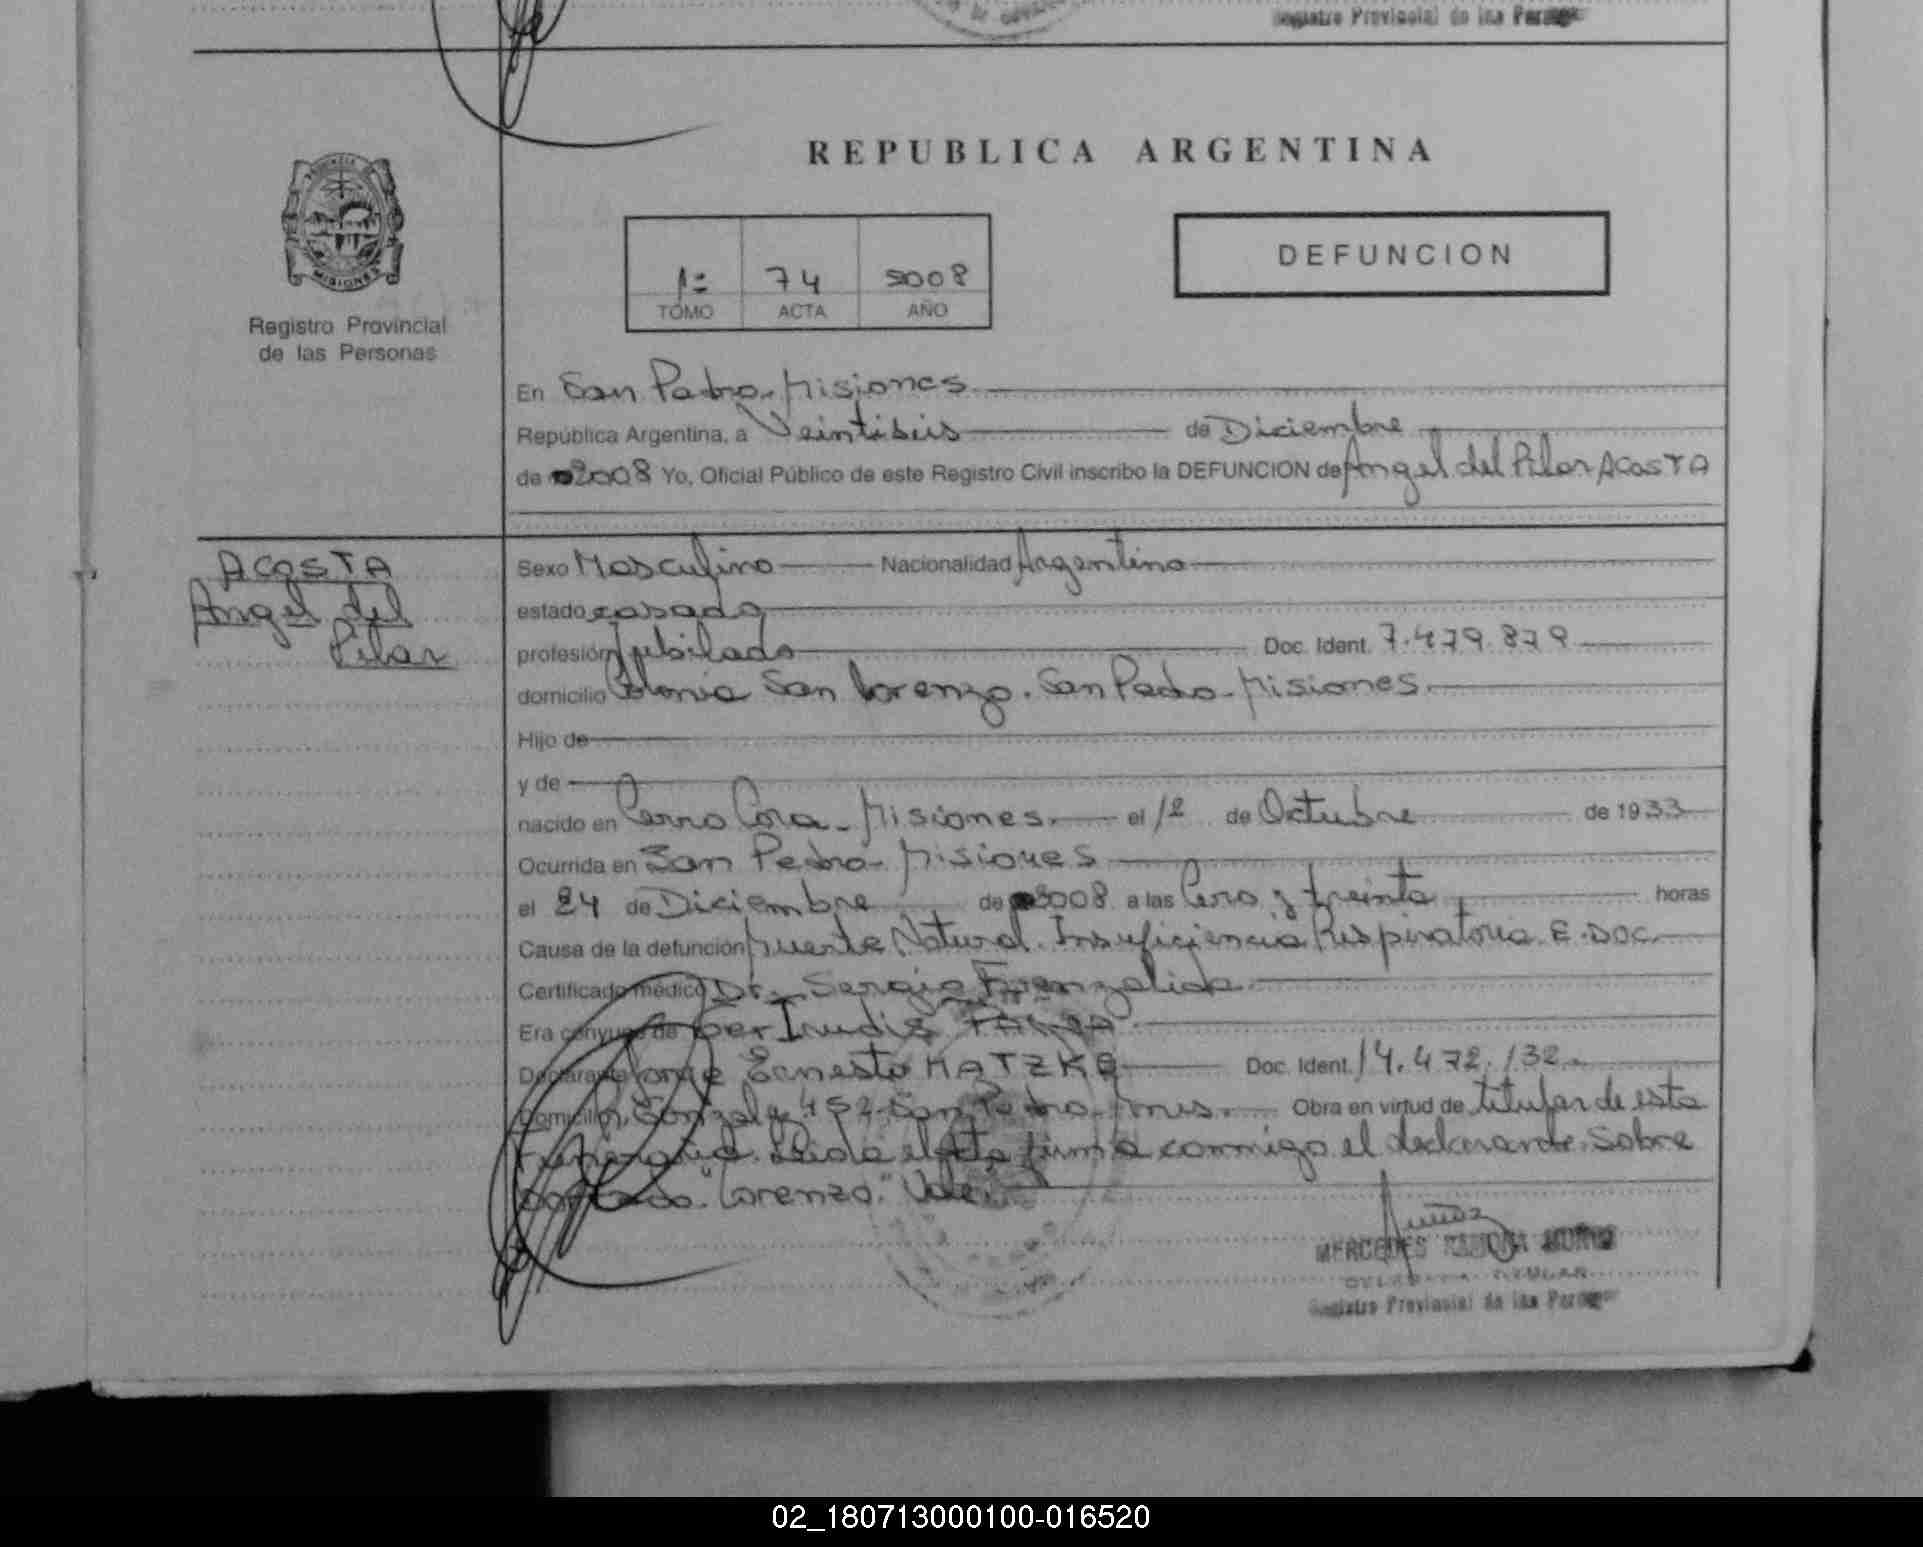 Registro Provincial de las Personas
REPUBLICA ARGENTINA
MISIONES
Registro Provincial
de las Personas
1º 74 2008
TOMO ACTA AÑO
DEFUNCION
En San Pedro-Misiones
República Argentina, a Veintiseis de Diciembre
de 2008 Yo, Oficial Público de este Registro Civil inscribo la DEFUNCION de Angel del Pilar ACOSTA
ACOSTA
Angel del
Pilar
Sexo Masculino Nacionalidad Argentino
estado casado
profesión Jubilado Doc. Ident. 7.479.879
domicilio Colonia San Lorenzo. San Pedro-Misiones.
Hijo de
y de
nacido en Cerro Cora-Misiones. el 12 de Octubre de 1933
Ocurrida en San Pedro-Misiones
el 24 de Diciembre de 2008 a las Cero y treinta horas
Causa de la defunción Muerte Natural. Insuficiencia Respiratoria. E.DOC
Certificado médico Dr. Sergio
Era conyuge de Gertrudis
Declarante Jorge Ernesto MATZKE Doc. Ident. 14.472.132.
Domicilio Gonzalez 452-San Pedro-Mnes. Obra en virtud de titular de esta
Funeraria. Leida el acta firma conmigo el declarante. Sobre
borrado. "Lorenzo." Vale.
MERCEDES RAMONA MUÑOZ
Registro Provincial de las Personas
02_180713000100-016520